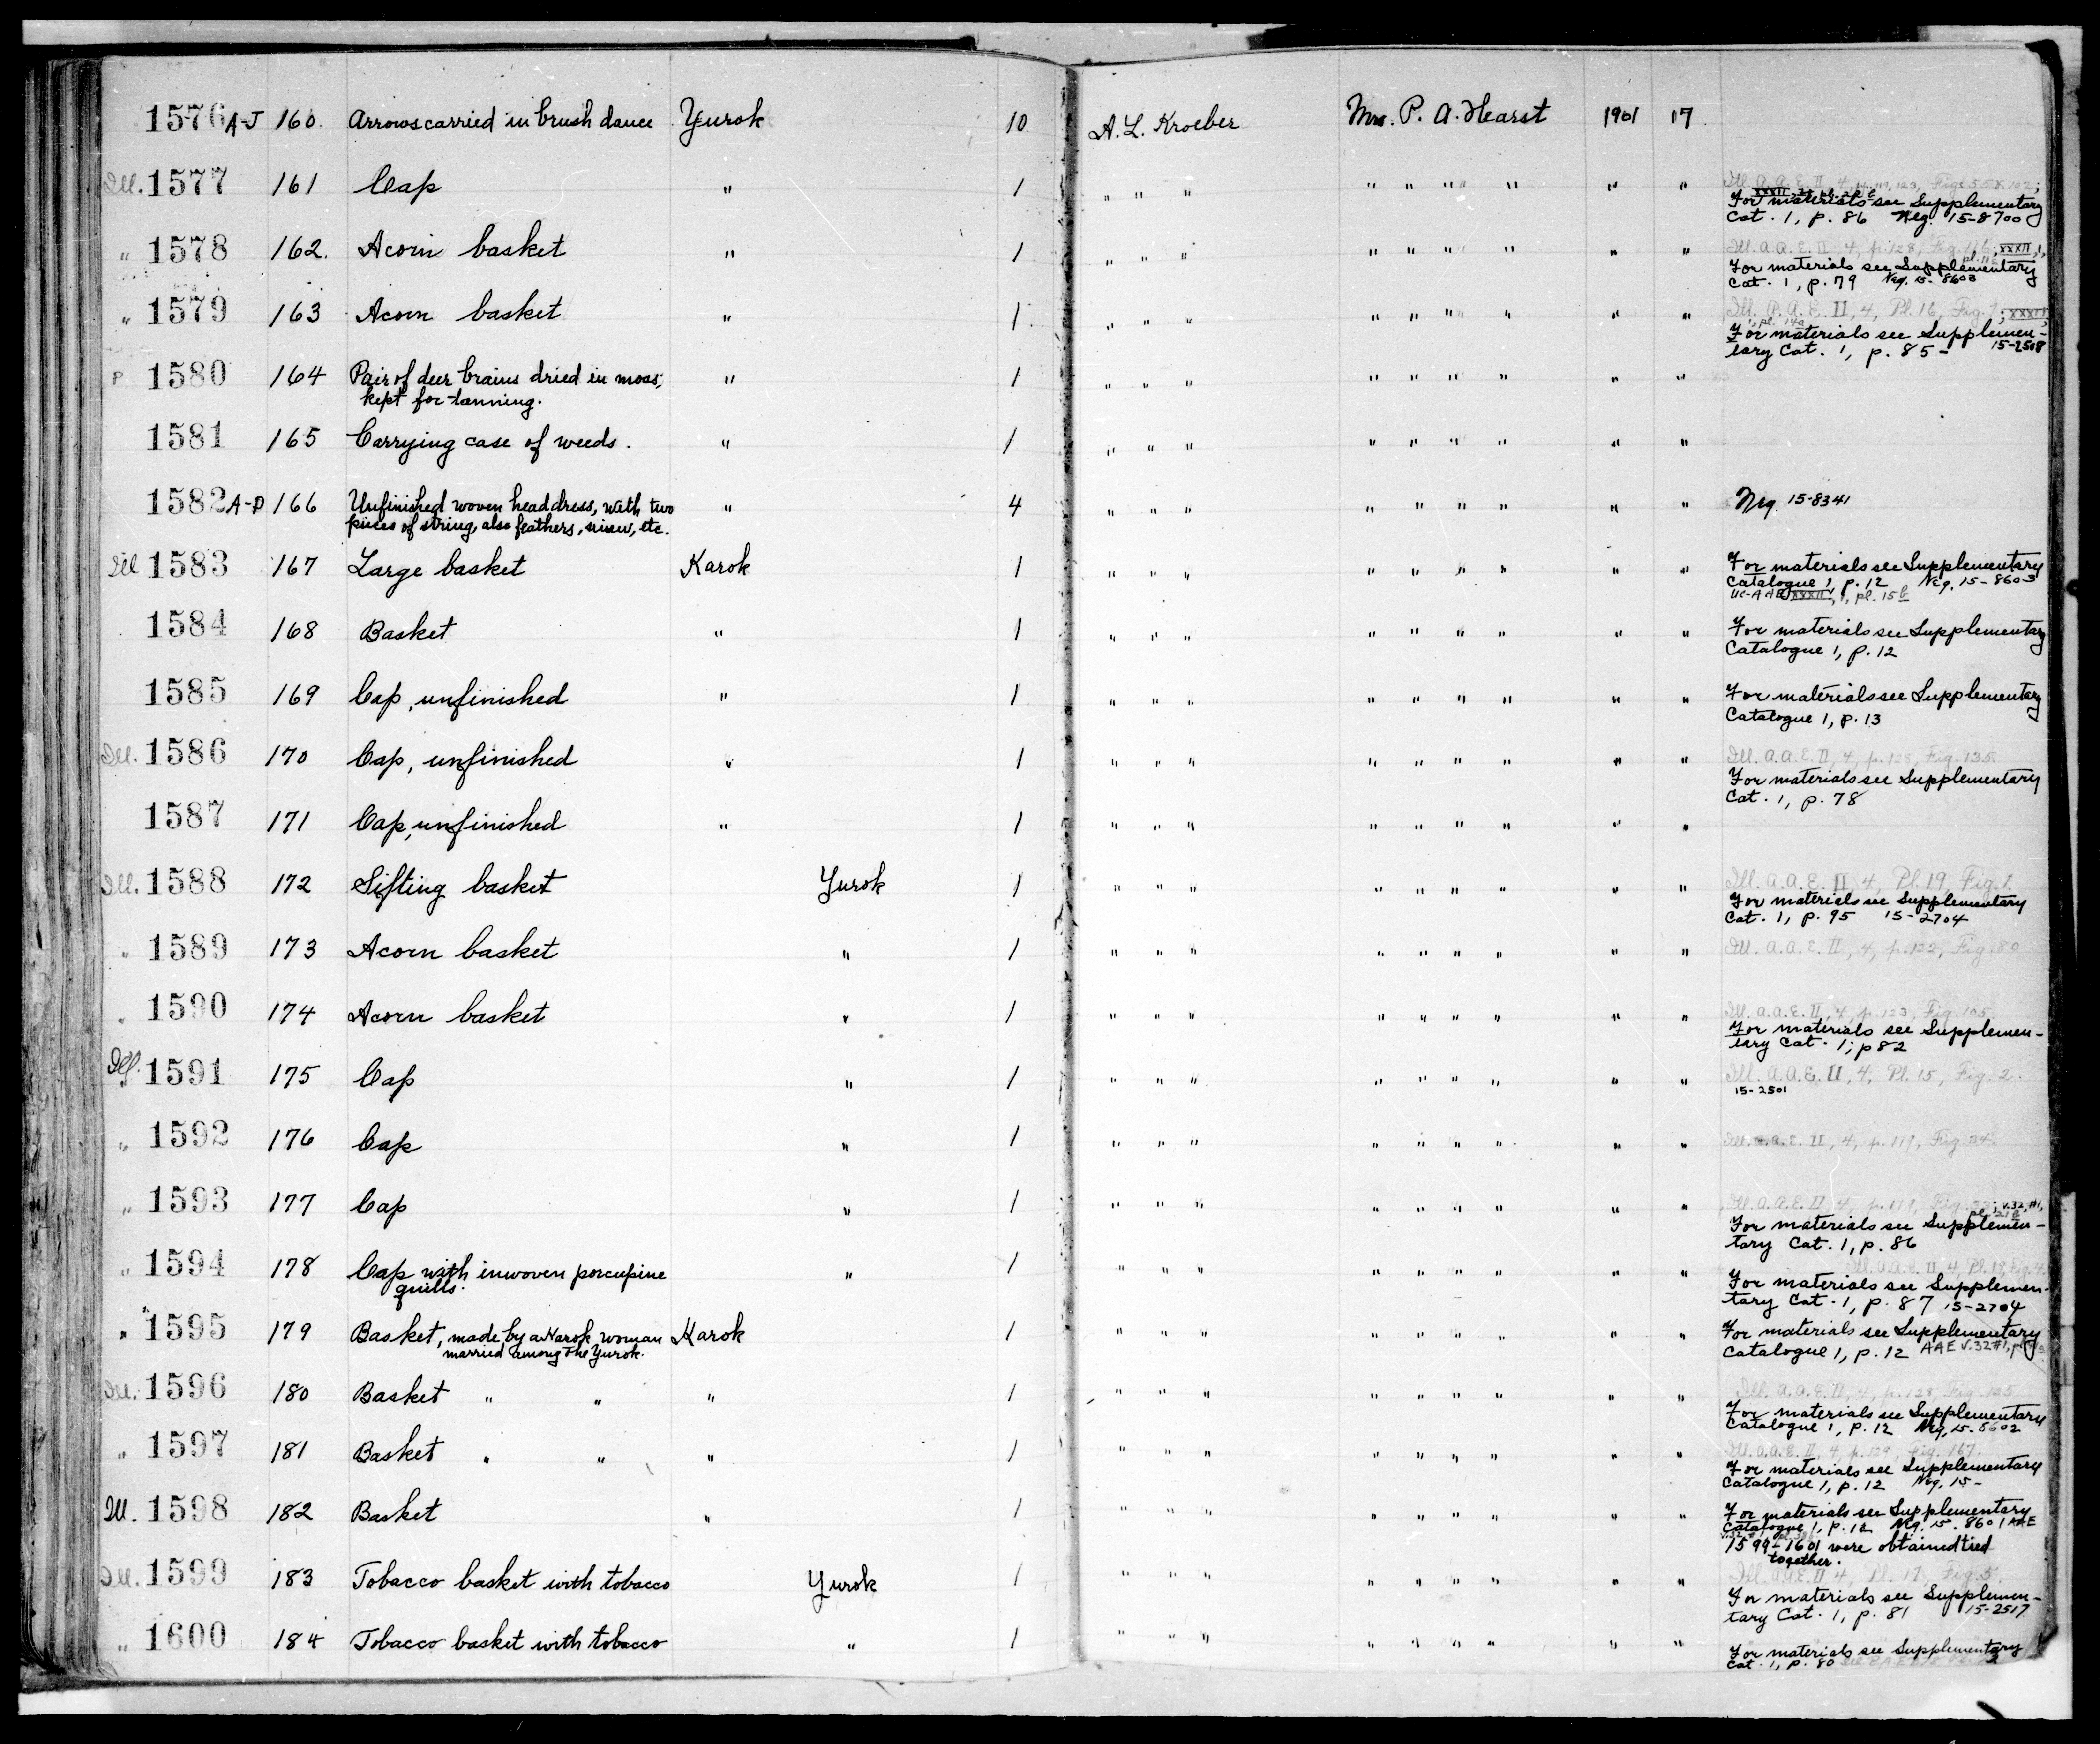 1576 A-J 160. Arrows carried in brush dance Yurok 10 A. L. Kroeber Mrs. P. A. Hearst 1901 17
Ill. 1577 161 Cap " 1 " " " " " " " " " Ill. A.A.E. II, 4, pp. 119, 123, Figs
For materials see Supplementary
Cat. 1, p. 86 Neg. 15-8700
" 1578 162. Acorn basket " 1 " " " " " " " " " Ill. A.A.E. II, 4, p. 128, Fig. 116; XXXII, 1,
For materials see Supplementary
Cat. 1, p. 79 Neg. 15-8603
" 1579 163 Acorn basket " 1 " " " " " " " " " Ill. A.A.E. II, 4, Pl. 16, Fig. 1; XXXII,
1, pl. 14a
For materials see Supplemen-
tary Cat. 1, p. 85- 15-2508
P 1580 164 Pair of deer brains dried in moss; " 1 " " " " " " " " "
kept for tanning.
1581 165 Carrying case of weeds. " 1 " " " " " " " " "
1582 A-D 166 Unfinished woven headdress, with two " 4 " " " " " " " " " Neg 15-8341
pieces of string, also feathers, sinew, etc.
Ill 1583 167 Large basket Karok 1 " " " " " " " " " For materials see Supplementary
Catalogue 1, p. 12 Neg. 15-8603
UC-AAE XXXII, 1, pl. 15b
1584 168 Basket " 1 " " " " " " " " " For materials see Supplementary
Catalogue 1, p. 12
1585 169 Cap, unfinished " 1 " " " " " " " " " For materials see Supplementary
Catalogue 1, p. 13
Ill. 1586 170 Cap, unfinished " 1 " " " " " " " " " Ill. A.A.E. II, 4, p. 128, Fig. 135.
For materials see Supplementary
Cat. 1, p. 78
1587 171 Cap, unfinished " 1 " " " " " " " " "
Ill. 1588 172 Sifting basket Yurok 1 " " " " " " " " " Ill. A.A.E. II, 4, Pl. 19, Fig. 1.
For materials see Supplementary
Cat. 1, p. 95 15-2704
" 1589 173 Acorn basket " 1 " " " " " " " " " Ill. A.A.E. II, 4, p. 122, Fig. 80
" 1590 174 Acorn basket " 1 " " " " " " " " " Ill. A.A.E. II, 4, p. 123, Fig. 105
For materials see Supplemen-
tary Cat. 1, p 82
Ill. 1591 175 Cap " 1 " " " " " " " " " Ill. A.A.E. II, 4, Pl. 15, Fig. 2.
15-2501
" 1592 176 Cap " 1 " " " " " " " " " Ill. A.A.E. II, 4, p. 119, Fig. 34.
" 1593 177 Cap " 1 " " " " " " " " " Ill. A.A.E. II, 4, p. 119, Fig. ; v.32, #1,
For materials see Supplemen-
tary Cat. 1, p. 86
" 1594 178 Cap with inwoven porcupine " 1 " " " " " " " " " Ill. A.A.E. II, 4, Pl. 18, Fig. 4.
quills. For materials see Supplemen-
tary Cat. 1, p. 87 15-2704
" 1595 179 Basket, made by a Karok woman Karok 1 " " " " " " " " " For materials see Supplementary
married among the Yurok. Catalogue 1, p. 12 AAE v.32 #1,
Ill. 1596 180 Basket " " " 1 " " " " " " " " " Ill. A.A.E. II, 4, p. 128, Fig. 125
For materials see Supplementary
Catalogue 1, p. 12 Neg. 15-8602
" 1597 181 Basket " " " 1 " " " " " " " " " Ill. A.A.E. II, 4, p. 129, Fig. 167.
For materials see Supplementary
Catalogue 1, p. 12 Neg. 15-
Ill. 1598 182 Basket " 1 " " " " " " " " " For materials see Supplementary
Catalogue 1, p. 12 Neg. 15-8601 AAE
1599-1601 were obtained tied
together.
Ill. 1599 183 Tobacco basket with tobacco Yurok 1 " " " " " " " " " Ill. A.A.E. II 4, Pl. 17, Fig. 5.
For materials see Supplemen-
tary Cat. 1, p. 81 15-2517
" 1600 184 Tobacco basket with tobacco " 1 " " " " " " " " " For materials see Supplementary
Cat. 1, p. 80